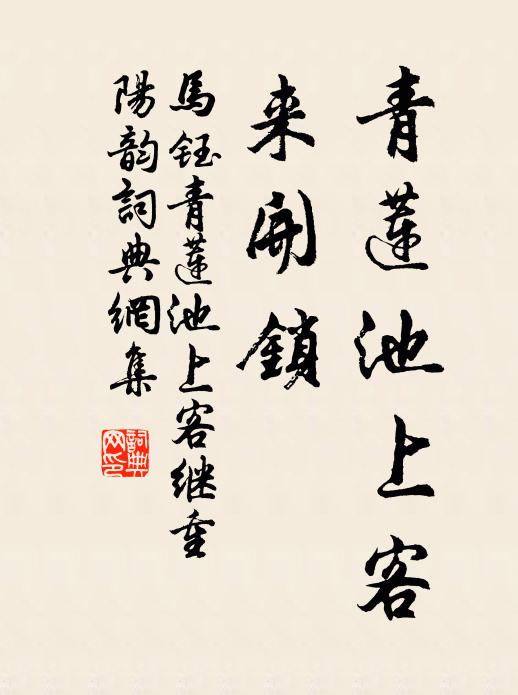 青蓮池上客
来開鎖
馬鈺青蓮池上客继重
陽韵詞典網集
詞典网印